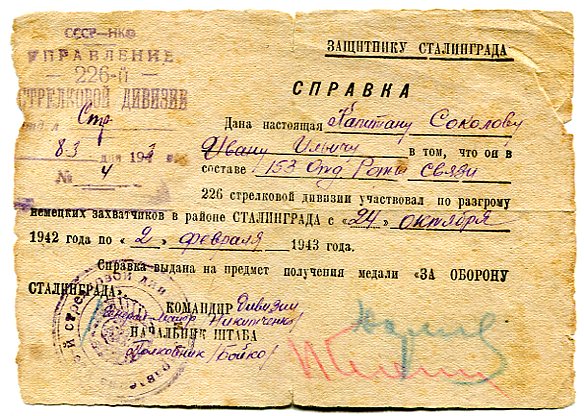 СССР—НКО
УПРАВЛЕНИЕ
226-й
СТРЕЛКОВОЙ ДИВИЗИИ
Стр
8.3 дня 1943 г.
№ 4
ЗАЩИТНИКУ СТАЛИНГРАДА
СПРАВКА
Дана настоящая Капитану Соколову
Ивану Ильичу в том, что он в
составе 153 Отд. Роты Связи
226 стрелковой дивизии участвовал по разгрому
немецких захватчиков в районе СТАЛИНГРАДА с «24» октября
1942 года по «2» февраля 1943 года.
Справка выдана на предмет получения медали «ЗА ОБОРОНУ
СТАЛИНГРАДА».
КОМАНДИР Дивизии
Генерал-майор /Никитченко/
НАЧАЛЬНИК ШТАБА
Полковник /Бойко/